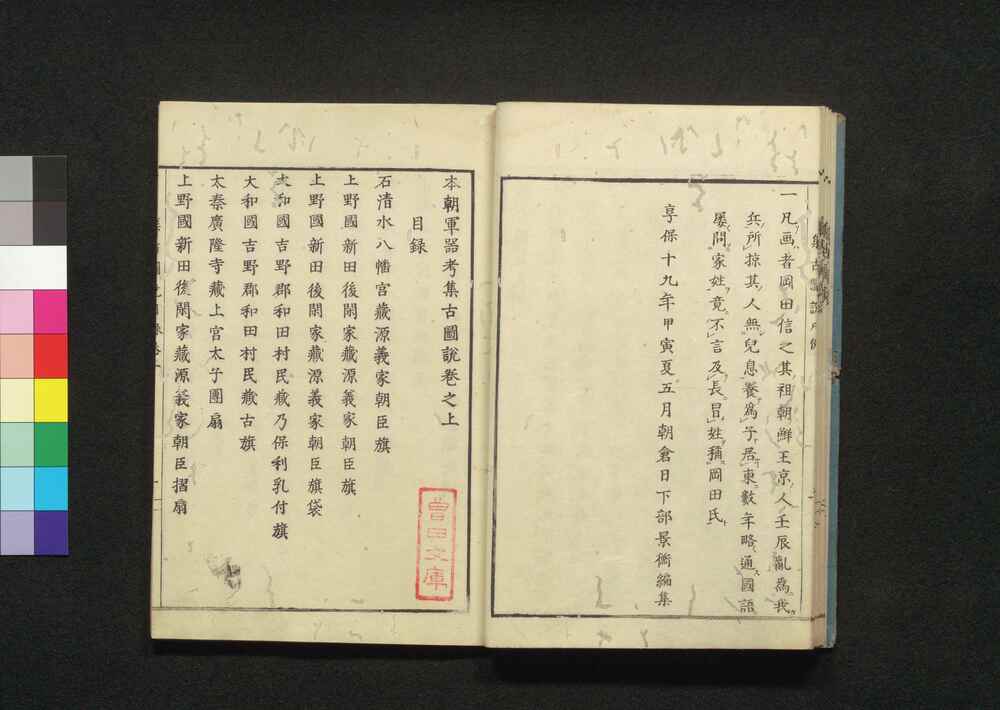 一凡画者岡田信之其祖朝鮮王京人壬辰亂為我
兵所掠其人無兒息養為子居東數年略通國語
屡問家姓竟不言及長冒姓稱岡田氏
享保十九年甲寅夏五月朝倉日下部景衡編集
本朝軍器考集古圖説卷之上
目録
石清水八幡宮藏源義家朝臣旗
上野國新田後閑家藏源義家朝臣旗
上野國新田後閑家藏源義家朝臣旗袋
大和國吉野郡和田村民藏乃保利乳付旗
大和國吉野郡和田村民藏古旗
太秦廣隆寺藏上宮太子團扇
上野國新田後閑家藏源義家朝臣摺扇
曾田文庫